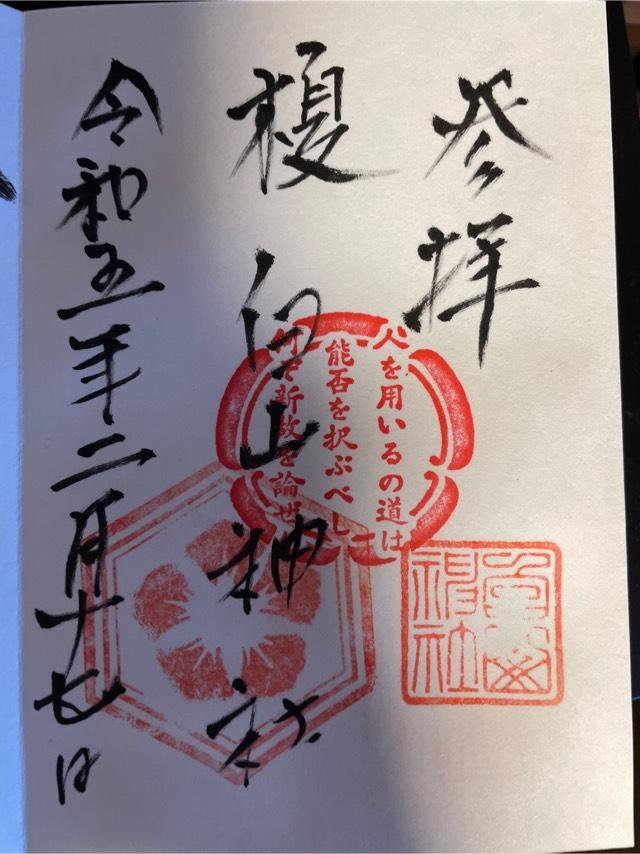 参拝
榎白山神社
令和五年二月十七日
人を用いるの道は
能否を択ぶべし
新故を論ぜ
神社